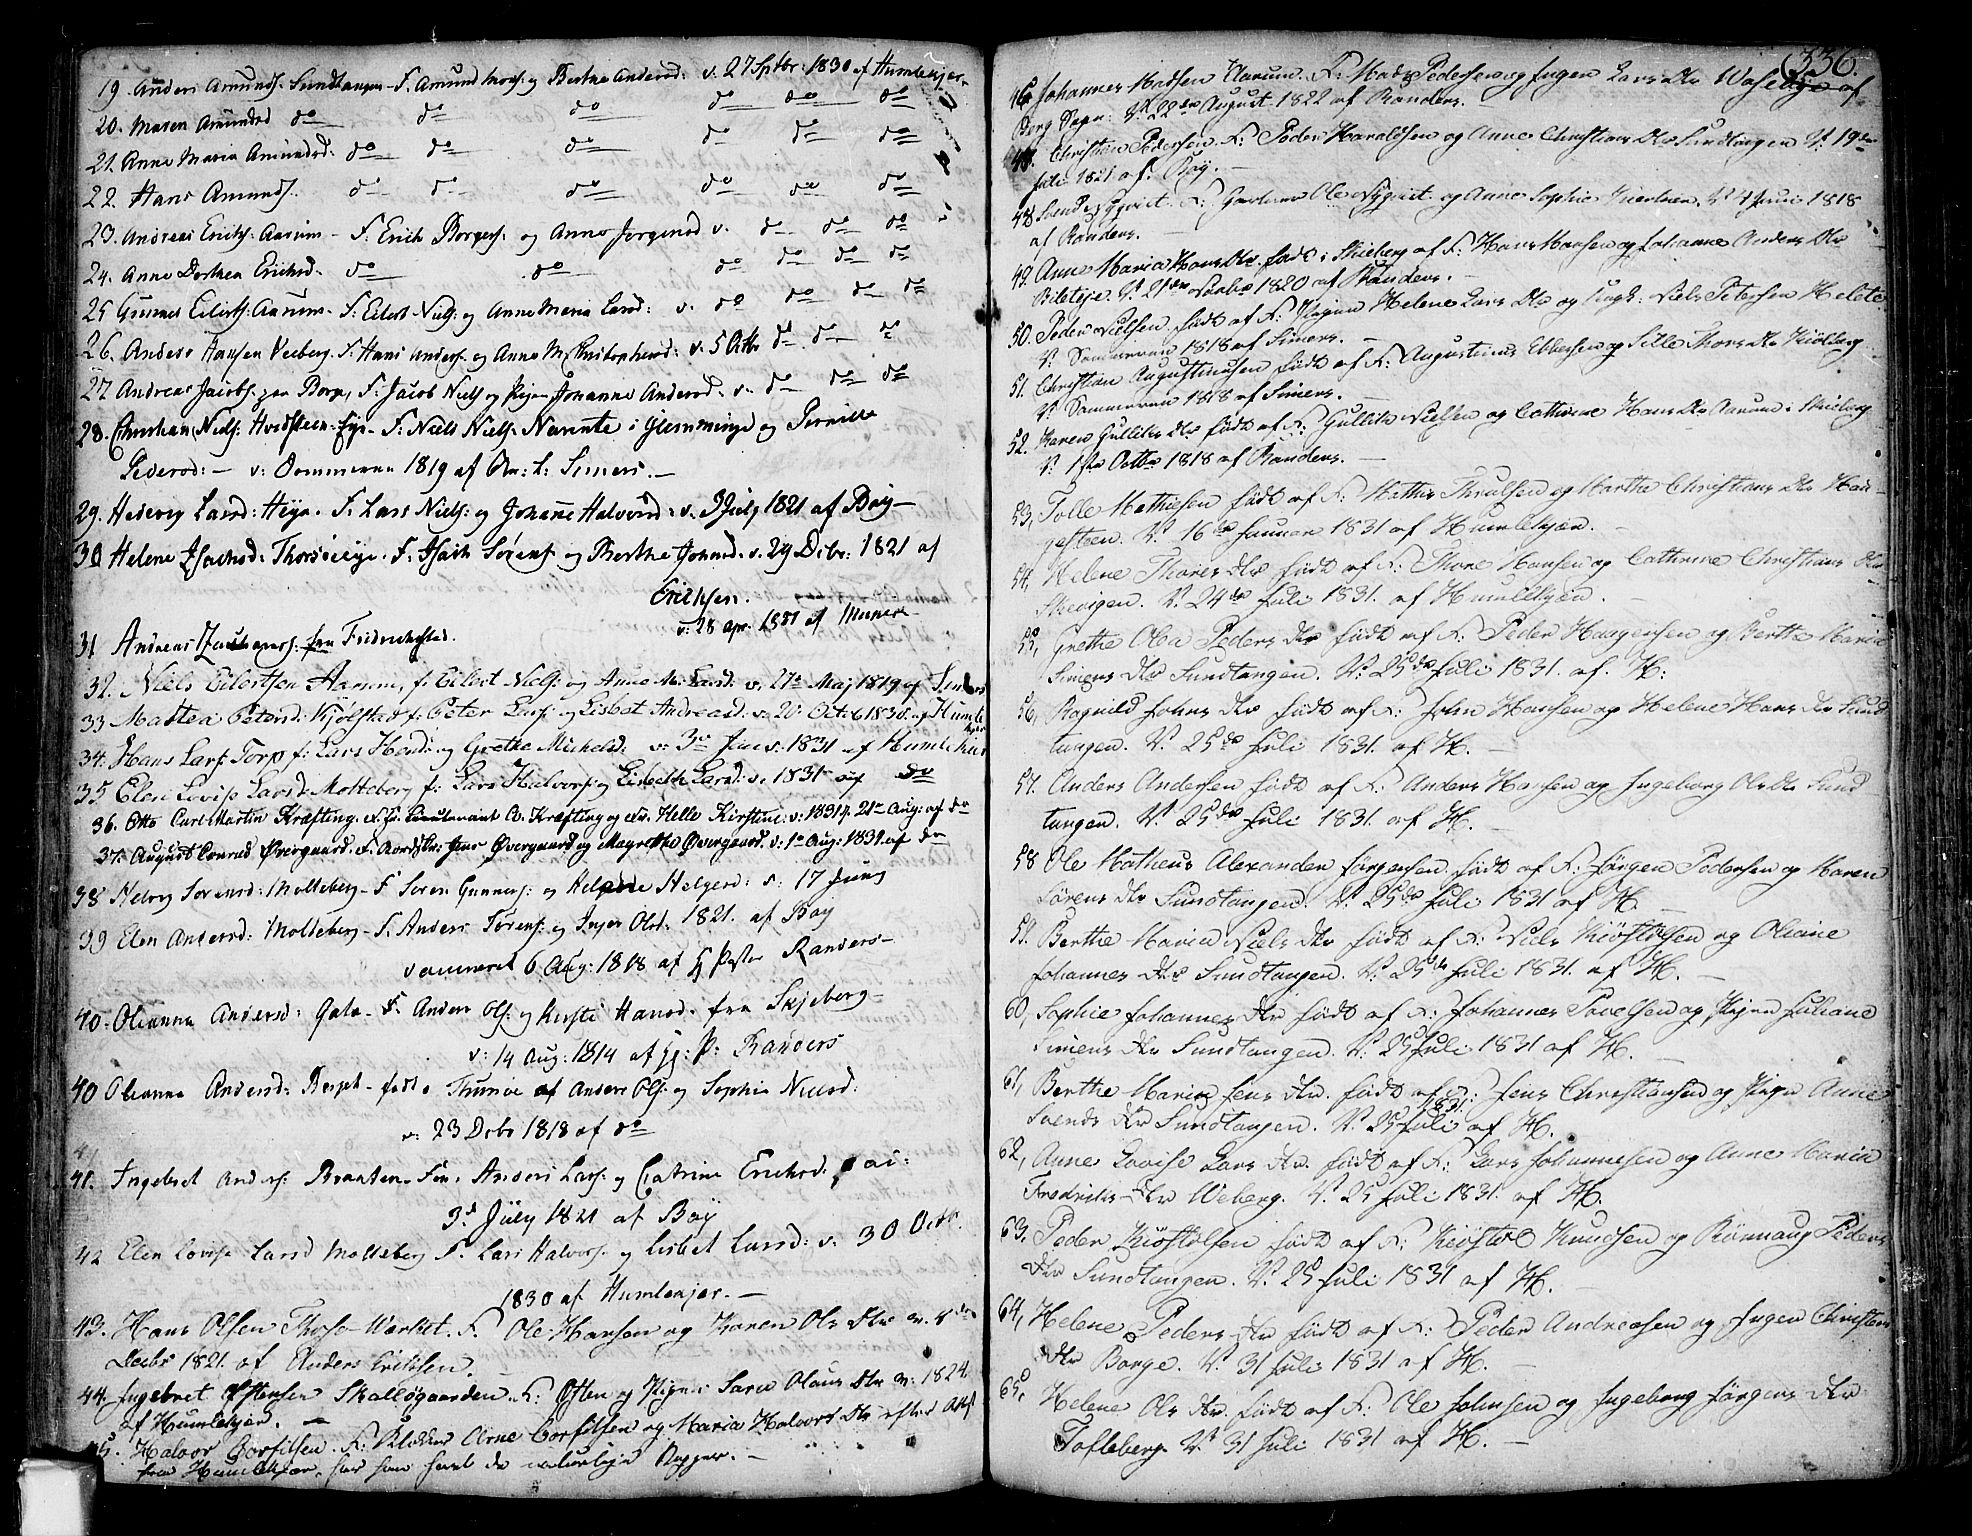 19. Anders Amunds. Sundtangen - F. Amund Mors: og Berthe Andersd: v. 27 Sptbr: 1830 af Humlekjær-
20. Maren Amundsd do do do do do do
21. Anne Maria Amundsd: do do do do do do
22. Hans Amunds. do do do do do do
23. Andreas Erichs. Aarum - F. Erich Borgers: og Anne Jørgensd v. do do do
24. Anne Dorthea Erichsd. do do do do do do
25 Gunner Eilerts: Aarum - F. Eilert Niels: og Anne Maria Larsd: v. do do do do
26. Anders Hansen Veeberg. F. Hans Anders: og Anne M. Christophersd: v. 5 Octbr do do do
27 Andreas Jacobs: paa Borge, F. Jacob Niels og Pigen Johanne Andersd - v. do do do
28. Christian Niels: Hvidsteen-Eje - F. Niels Niels: Navente i Glemminge og Pernille
Pedersd: - v. Sommeren 1819 af Chr: L: Simers. -
29. Hedevig Larsd: Heye. F. Lars Niels: og Johanne Halvorsd: v. 3 July 1821 af Bøy -
30 Helene Isachsd: Thorsøeije. F. Isach Sørens: og Berthe Johnsd. v. 29 Decbr: 1821 af
Erichsen.
v. 28 apr. 1831 af
31 Andreas Zachariass: fra Fredrichstad.
32. Niels Eilertsen Aarum, f. Eilert Niels: og Anne M. Larsd: v. 27 Maj 1819 af Simers
33 Mathea Petersd: Kjølstad f. Peter Lars: og Lisbet Andreasd: v. 20 Octob 1830. af Humle
kjær
34. Hans Lars: Torp f: Lars Hansd: og Grethe Michelsd: v. 3 Jan: 1831 af Humlekjær
35 Elen Lovise Larsd Molteberg f: Lars Halvors: og Lisbeth Larsd: v. 1831 af do
36. Otto Carl Martin Krefting. F. Lieutenant O. Krefting og Helle Kirstine: v. 1831 21 Aug: af do
37. August Conrad Øvergaard. F. Jens Øvergaard og Magrethe Øvergaard. v: 1 Aug: 1831. af do
38 Helvig Sørensd: Molteberg - F Søren Gunners: og Helene Helgesd: v. 17 Juny
39 Elen Andersd: Molteberg - F. Anders Tørens: og Inger Olsd. 1821. af Bøy
vaccineret 6 Aug: 1818 af H Pastor Randers -
40. Oleanna Andersd: Gata - F. Anders Ols: og Kirsti Hansd. fra Skjeberg -
v: 14 Aug: 1814 af H: P: Randers
40 Oleanna Andersd: Bergsl - født i Thunøe af Anders Ols: og Sophia Nielsd:
v: 23 Decbr 1818 af do
41. Ingebret Anders: Braaten - For: Anders Lars: og Catrine Erichsd:
3d July 1821 af Bøy
42 Elen Lovise Larsd Molteberg F. Lars Halvors: og Lisbet Larsd: v. 30 Octb.
1830 af Humlekjær. -
43. Hans Olsen Thosø-Værket. F. Ole Hansen og Karen Ols Dtr v. 8de
Decbr 1821. af Anders Erichsen.
44. Ingebret Østensen Skalløgaarden. F: Østen og Pigen: Sara Olaus Dtr v: 1824
af Humlekjær. -
45. Halvor Torfilsen. F: Klokker Arne Torfilsen og Maria Halvors Dtr efter Attest
fra Humlekjær, har han havt de naturlige Kopper. -
336.
46 Johannes Madsen Aarum. F: Mads Pedersen og Ingen Lars Dtr Vaseby af
Berg Sogn: V. 22de August 1822 af Randers.
Christian Pedersen. F: Peder Haraldsen og Anne Christians Dtr Sundtangen V. 19de
Juli 1821 af. Bøy. -
48 Svend Nyqvist. F: Ole Nyqvist og Anne Sophie V. 4 Juni 1818
af Randers. -
49. Anne Maria Hans Dtr. født i Skieberg af F: Hans Hansen og Johanne Anders Dtr
Bileteje. V. 21de Novbr 1820 af Randers.
50. Peder Nielsen født af F: Pigen Helene Lars Dtr og Ungk: Niels Petersen Helete
V. Sommeren 1818 af Simers. -
51. Christian Augustinusen født af F: Augustinus Ebbesen og Sille Thors Dtr Kiølberg
V. Sommeren 1818 af Simers. -
52. Karen Gulliks Dtr født af F: Gullik Nielsen og Cathrine Hans Dtr Aarum i Skieberg
V. 1ste Octbr 1818 af Randers. -
53, Tolle Mathiesen født af F: Mathis Thrulsen og Marthe Christians Dtr Hau-
gesteen. V. 16de Januar 1831 af Humlekjær. -
54, Helene Thores Dtr født af F: Thore Hansen og Cathrine Christians Dtr
Skevigen. V. 24de Juli 1831. af Humlekjær. -
55, Grethe Olea Peders Dtr født af F: Peder Haagensen og Berthe Maria
Simens Dtr Sundtangen. V. 25de Juli 1831. af. H:
56, Ragnild Johns Dtr født af F: John Hansen og Helene Hans Dtr Sund
tangen. V. 25de Juli 1831. af H. -
57. Anders Andersen født af F: Anders Hansen og Ingeborg Ols Dtr Sund
tangen. V. 25de Juli 1831. af H. -
58 Ole Matheus Alexander Jørgensen født af F: Jørgen Pedersen og Maren
Sørens Dtr Sundtangen. V. 25de Juli 1831 af H. -
59. Berthe Maria Niels Dtr født af F: Niels Kiøstolsen og Oliane
Johannes Dtr Sundtangen. V. 25de Juli 1831. af H. -
60, Sophie Johannes Dtr født af F: Johannes Povelsen og Pigen Juliane
Simens Dtr Sundtangen. V. 25 Juli 1831 af H. -
61, Berthe Maria Jens Dtr. født af F: Jens Christiansen og Pigen Anne
Svends Dtr Sundtangen. V. 25 Juli 1831. af H.
62, Anne Lovise Lars Dtr. født af F: Lars Johannesen og Anne Maria
Fredriks Dtr Weberg. V. 25 Juli 1831. af H.
63. Peder Kiøstolsen født af F: Kiøstol Knudsen og Rønnaug Peders
Dtr Sundtangen. V. 25 Juli 1831 af H. -
64, Helene Peders Dtr født af F: Peder Andreasen og Ingen Christens
Dtr Borge. V. 31 Juli 1831 af H. -
65, Helene Ols Dtr. født af F: Ole Johnsen og Ingeborg Jørgens Dtr
Tofleberg. V. 31 Juli 1831 af H. -